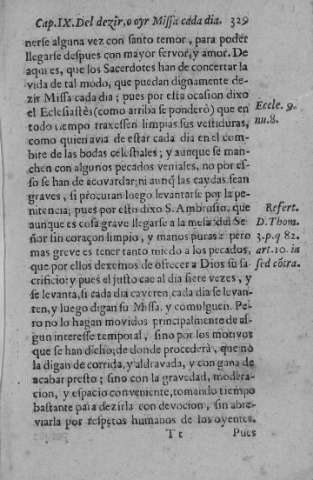 Cap. IX. Del dezir, o oyr Missa cada dia. 329
nerse alguna vez con santo temor, para poder
llegarse despues con mayor fervor, y amor. De
aqui es, que los Sacerdotes han de concertar la
vida de tal modo, que puedan dignamente de-
zir Missa cada dia; pues por esta ocasion dixo
el Eclesiastès (como arriba se ponderò) que en
todo tiempo traxessen limpias sus vestiduras,
como quien avia de estar cada dia en el com-
bite de las bodas celestiales; y aunque se man-
chen con algunos pecados veniales, no por es-
so se han de acovardar; ni aunq̃ las caydas sean
graves, si procuran luego levantarse por la pe-
nitencia; pues por esto dixo S. Ambrosio, que
aunque es cosa grave llegarse a la mesa del Se-
ñor sin coraçon limpio, y manos puras; pero
mas greve es tener tanto miedo a los pecados,
que por ellos dexemos de ofrecer a Dios su sa-
crificio: y pues el justo cae al dia siete vezes, y
se levanta, si cada dia cayeren, cada dia se levan-
ten, y luego digan su Missa, y comulguen. Pe-
ro no lo hagan movidos principalmente de al-
gun interesse temporal, sino por los motivos
que se han dicho; de donde procederà, que no
la digan de corrida, y aldravada, y con gana de
acabar presto; sino con la gravedad, modera-
cion, y espacio conveniente, tomando tiempo
bastante para dezirla con devocion, sin abre-
viarla por respetos humanos de los oyentes.
Tt Pues
Eccle. 9.
nu. 8.
Refert.
D. Thom.
3. p. q 82.
art. 10. in
sed cõtra.